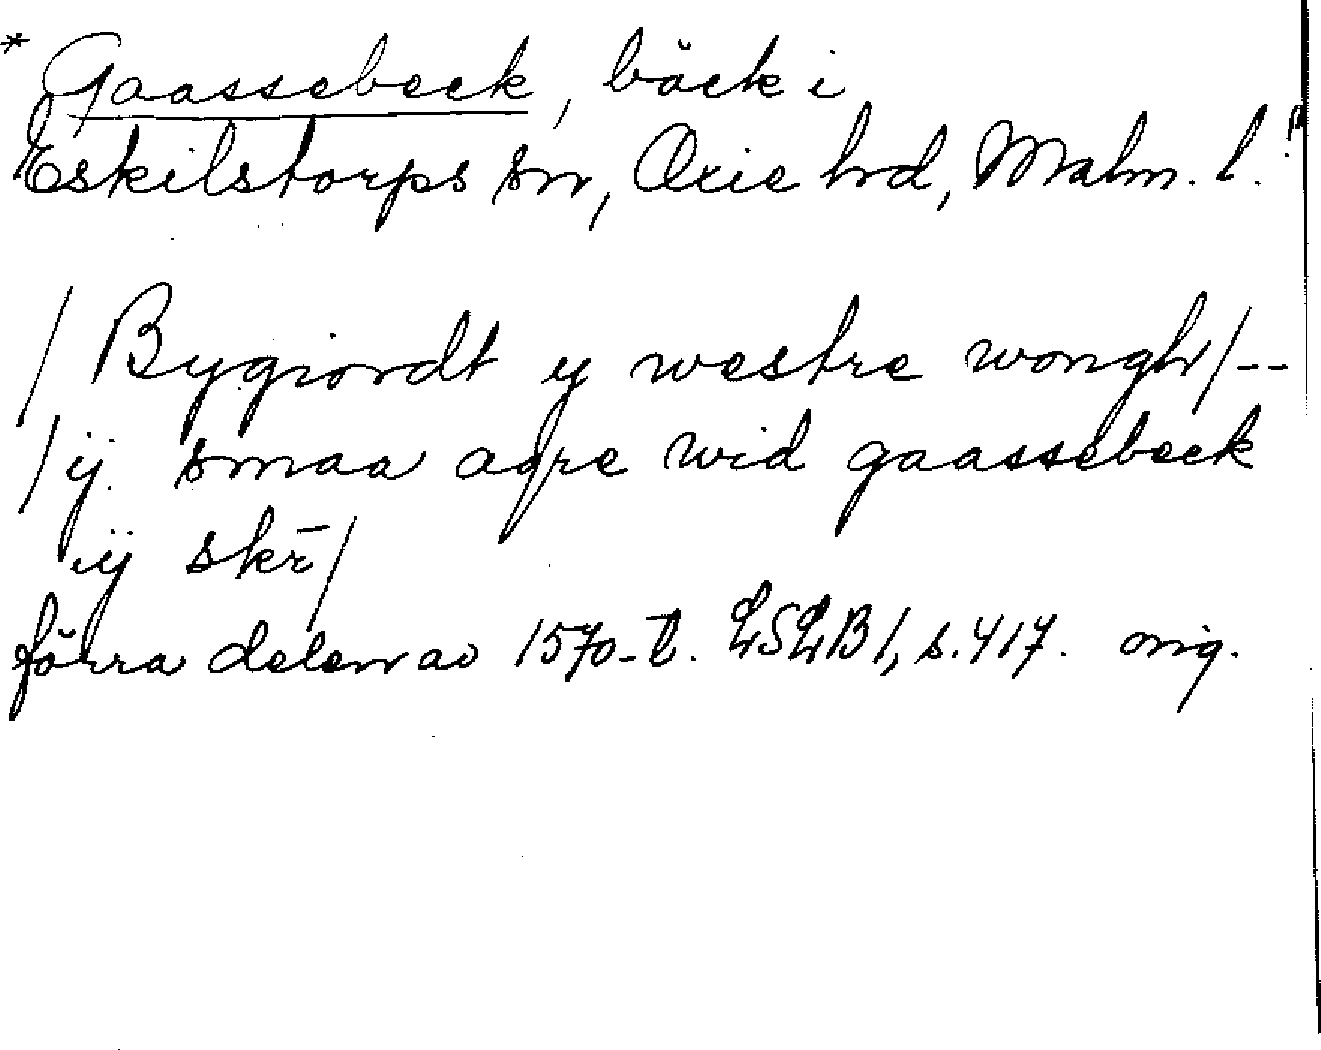 * Gaassebeck, bäck i
Eskilstorps sn, Oxie hd, Malm. l.
/ Bygiordt y westre wongh/--
/ÿ smaa agre wid gaassebeck
ÿ skr̄/
förra delen av 1570-t. LSLB 1, s. 417. orig.